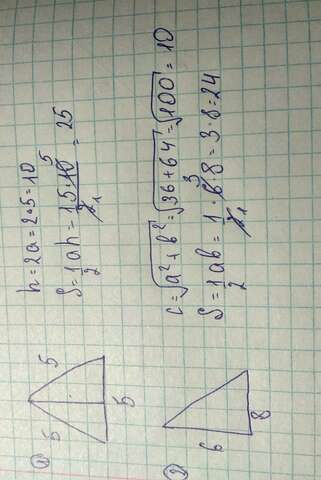 1
5 5
5
h = 2a = 2·5 = 10
S = 1/2 ah = 1 5·10 5 / 2 1 = 25
2
6
8
c = √a² + b² = √36 + 64 = √100 = 10
S = 1/2 ab = 1 · 6 3 · 8 / 2 1 = 3·8 = 24